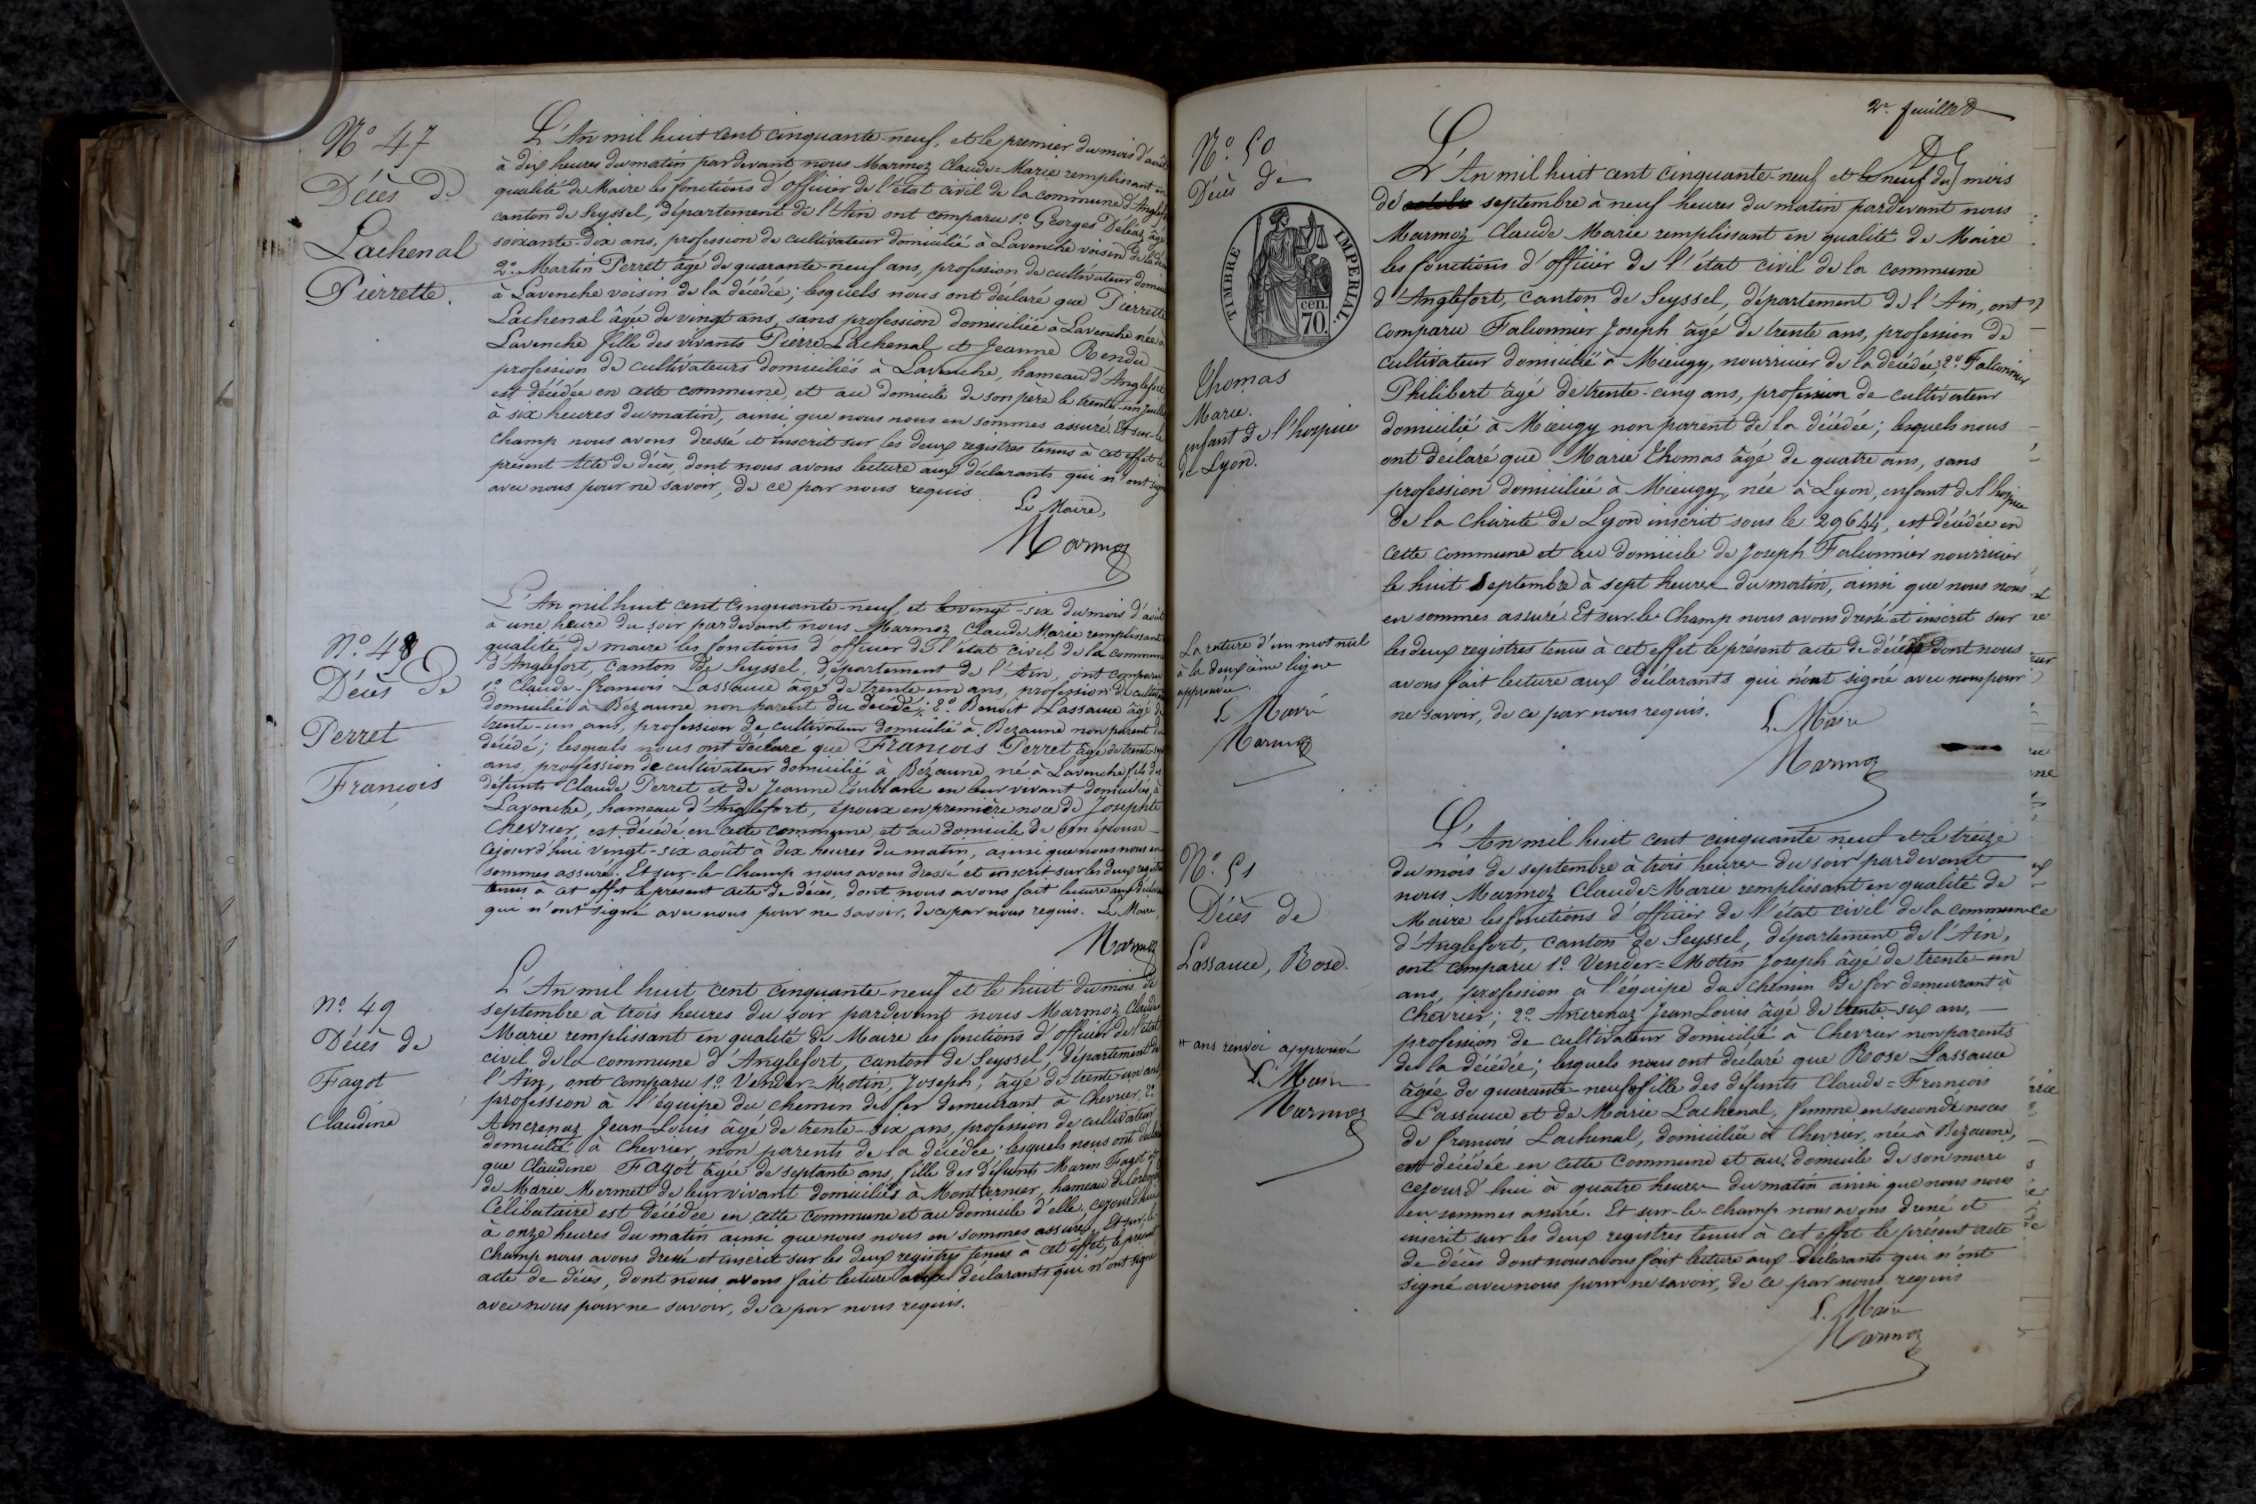 N.o 47
Décès de
Lachenal
Pierrette.
L'An mil huit cent cinquante-neuf, et le premier du mois d'août
à dix heures du matin pardevant nous Marmoz Claude-Marie remplissant en
qualité de Maire les fonctions d'officier de l'état civil de la commune d'Anglefort
canton de Seyssel, département de l'Ain ont comparu 1.o Georges Déléaz âgé
soixante-dix ans, profession de cultivateur domicilié à Lavenche voisin de la
2.o Martin Perret âgé de quarante-neuf ans, profession de cultivateur domicilié
à Lavenche voisin de la décédée; lesquels nous ont déclaré que Pierrette
Lachenal âgée de vingt ans, sans profession domiciliée à Lavenche née à
Lavenche fille des vivants Pierre Lachenal et Jeanne Rendu
profession de cultivateurs domiciliés à Lavenche, hameau d'Anglefort
est décédée en cette commune, et au domicile de son père le trente-un juillet
à six heures du matin, ainsi que nous nous en sommes assuré. Et sur-le
champ nous avons dressé et inscrit sur les deux registres tenus à cet effet le
présent acte de décès, dont nous avons lecture aux déclarants qui n'ont signé
avec nous pour ne savoir, de ce par nous requis
Le Maire,
Marmoz
N.o 48
Décès de
Perret
François
L'An mil huit cent cinquante-neuf, et le vingt-six du mois d'août
à une heure du soir pardevant nous Marmoz Claude Marie remplissant
qualité de maire les fonctions d'officier de l'état civil de la commune
d'Anglefort, canton de Seyssel, département de l'Ain, ont comparu
1.o Claude-françois Lassauce âgé de trente-un ans, profession de cultivateur
domicilié à Bézaune non parent du décédé; 2.o Benoit Lassauce âgé de
trente-un ans, profession de cultivateur domicilié à Bezaune non parent du
décédé; lesquels nous ont déclaré que François Perret âgé de trente
ans, profession de cultivateur domicilié à Bézaune, né à Lavenche fils des
défunts Claude Perret et de Jeanne Coublanc en leur vivant domiciliés à
Lavenche, hameau d'Anglefort, époux en première noce de Josephte
Chevrier, est décédé en cette commune, et au domicile de son épouse
cejourd'hui vingt-six août à dix heures du matin, ainsi que nous nous en
sommes assuré. Et sur-le-champ nous avons dressé et inscrit sur les deux registres
tenus à cet effet le présent acte de décès, dont nous avons fait lecture aux déclarants
qui n'ont signé avec nous pour ne savoir, de ce par nous requis. Le Maire,
Marmoz
N.o 49
Décès de
Fagot
Claudine
L'An mil huit cent cinquante-neuf et le huit du mois de
septembre à trois heures du soir pardevant nous Marmoz Claude
Marie remplissant en qualité de Maire les fonctions d'officier de l'état
civil de la commune d'Anglefort, canton de Seyssel, département de
l'Ain, ont comparu 1.o Vender-Motin, Joseph, âgé de trente-un ans
profession à l'équipe du chemin de fer demeurant à Chevrier, 2.o
Ancrenaz Jean-Louis âgé de trente-six ans, profession de cultivateur
domicilié à Chevrier, non parents de la décédée; lesquels nous ont déclaré
que Claudine Fagot âgée de septante ans, fille des défunts Marin Fagot et
de Marie Mermet de leur vivant domiciliés à Montvernier, hameau de Corbonod
Célibataire est décédée en cette commune et au domicile d'elle, cejourd'hui
à onze heures du matin ainsi que nous nous en sommes assuré. Et sur-le-
champ nous avons dressé et inscrit sur les deux registres tenus à cet effet, le présent
acte de décès, dont nous avons fait lecture aux déclarants qui n'ont signé
avec nous pour ne savoir, de ce par nous requis.
2.e feuillet
N.o 50
Décès de
TIMBRE IMPERIAL.
cen.
70.
Thomas
Marie.
enfant de l'hospice
de Lyon.
L'An mil huit cent cinquante-neuf et le neuf du mois
de septembre à neuf heures du matin pardevant nous
Marmoz Claude Marie remplissant en qualité de Maire
les fonctions d'officier de l'état civil de la commune
d'Anglefort, canton de Seyssel, département de l'Ain, ont
comparu Falconnier Joseph âgé de trente ans, profession de
cultivateur domicilié à Mieugy, nourricier de la décédée; 2.o Falconnier
Philibert âgé de trente-cinq ans, profession de cultivateur
domicilié à Mieugy non parent de la décédée; lesquels nous
ont déclaré que Marie Thomas âgé de quatre ans, sans
profession domiciliée à Mieugy, née à Lyon, enfant de l'hospice
de la charité de Lyon inscrit sous le 29644, est décédée en
cette commune et au domicile de Joseph Falconnier nourricier
le huit septembre à sept heures du matin, ainsi que nous nous
en sommes assuré. Et sur-le-champ nous avons dressé et inscrit sur
les deux registres tenus à cet effet le présent acte de décès dont nous
avons fait lecture aux déclarants qui n'ont signé avec nous pour
ne savoir, de ce par nous requis.
Le Maire
Marmoz
La rature d'un mot nul
à la deuxième ligne
approuvée.
Le Maire
Marmoz
N.o 51
Décès de
Lassauce, Rose.
L'An mil huit cent cinquante neuf et le treize
du mois de septembre à trois heures du soir pardevant
nous Marmoz Claude-Marie remplissant en qualité de
Maire les fonctions d'officier de l'état civil de la commune
d'Anglefort, canton de Seyssel, département de l'Ain,
ont comparu 1.o Vender-Motin Joseph âgé de trente-un
ans, profession à l'équipe du chemin de fer demeurant à
Chevrier; 2.o Ancrenaz Jean Louis âgé de trente-six ans,
profession de cultivateur domicilié à Chevrier non parents
de la décédée; lesquels nous ont déclaré que Rose Lassauce
âgée de quarante-neuf fille des défunts Claude-François
Lassauce et de Marie Lachenal, femme en seconde noces
de françois Lachenal, domiciliée à Chevrier, née à Bezaune,
est décédée en cette commune et au domicile de son marie
cejourd'hui à quatre heures du matin ainsi que nous nous
en sommes assuré. Et sur-le-champ nous avons dressé et
inscrit sur les deux registres tenus à cet effet le présent acte
de décès dont nous avons fait lecture aux déclarants qui n'ont
signé avec nous pour ne savoir, de ce par nous requis
Le Maire
Marmoz
ans renvoi approuvé
Le Maire
Marmoz